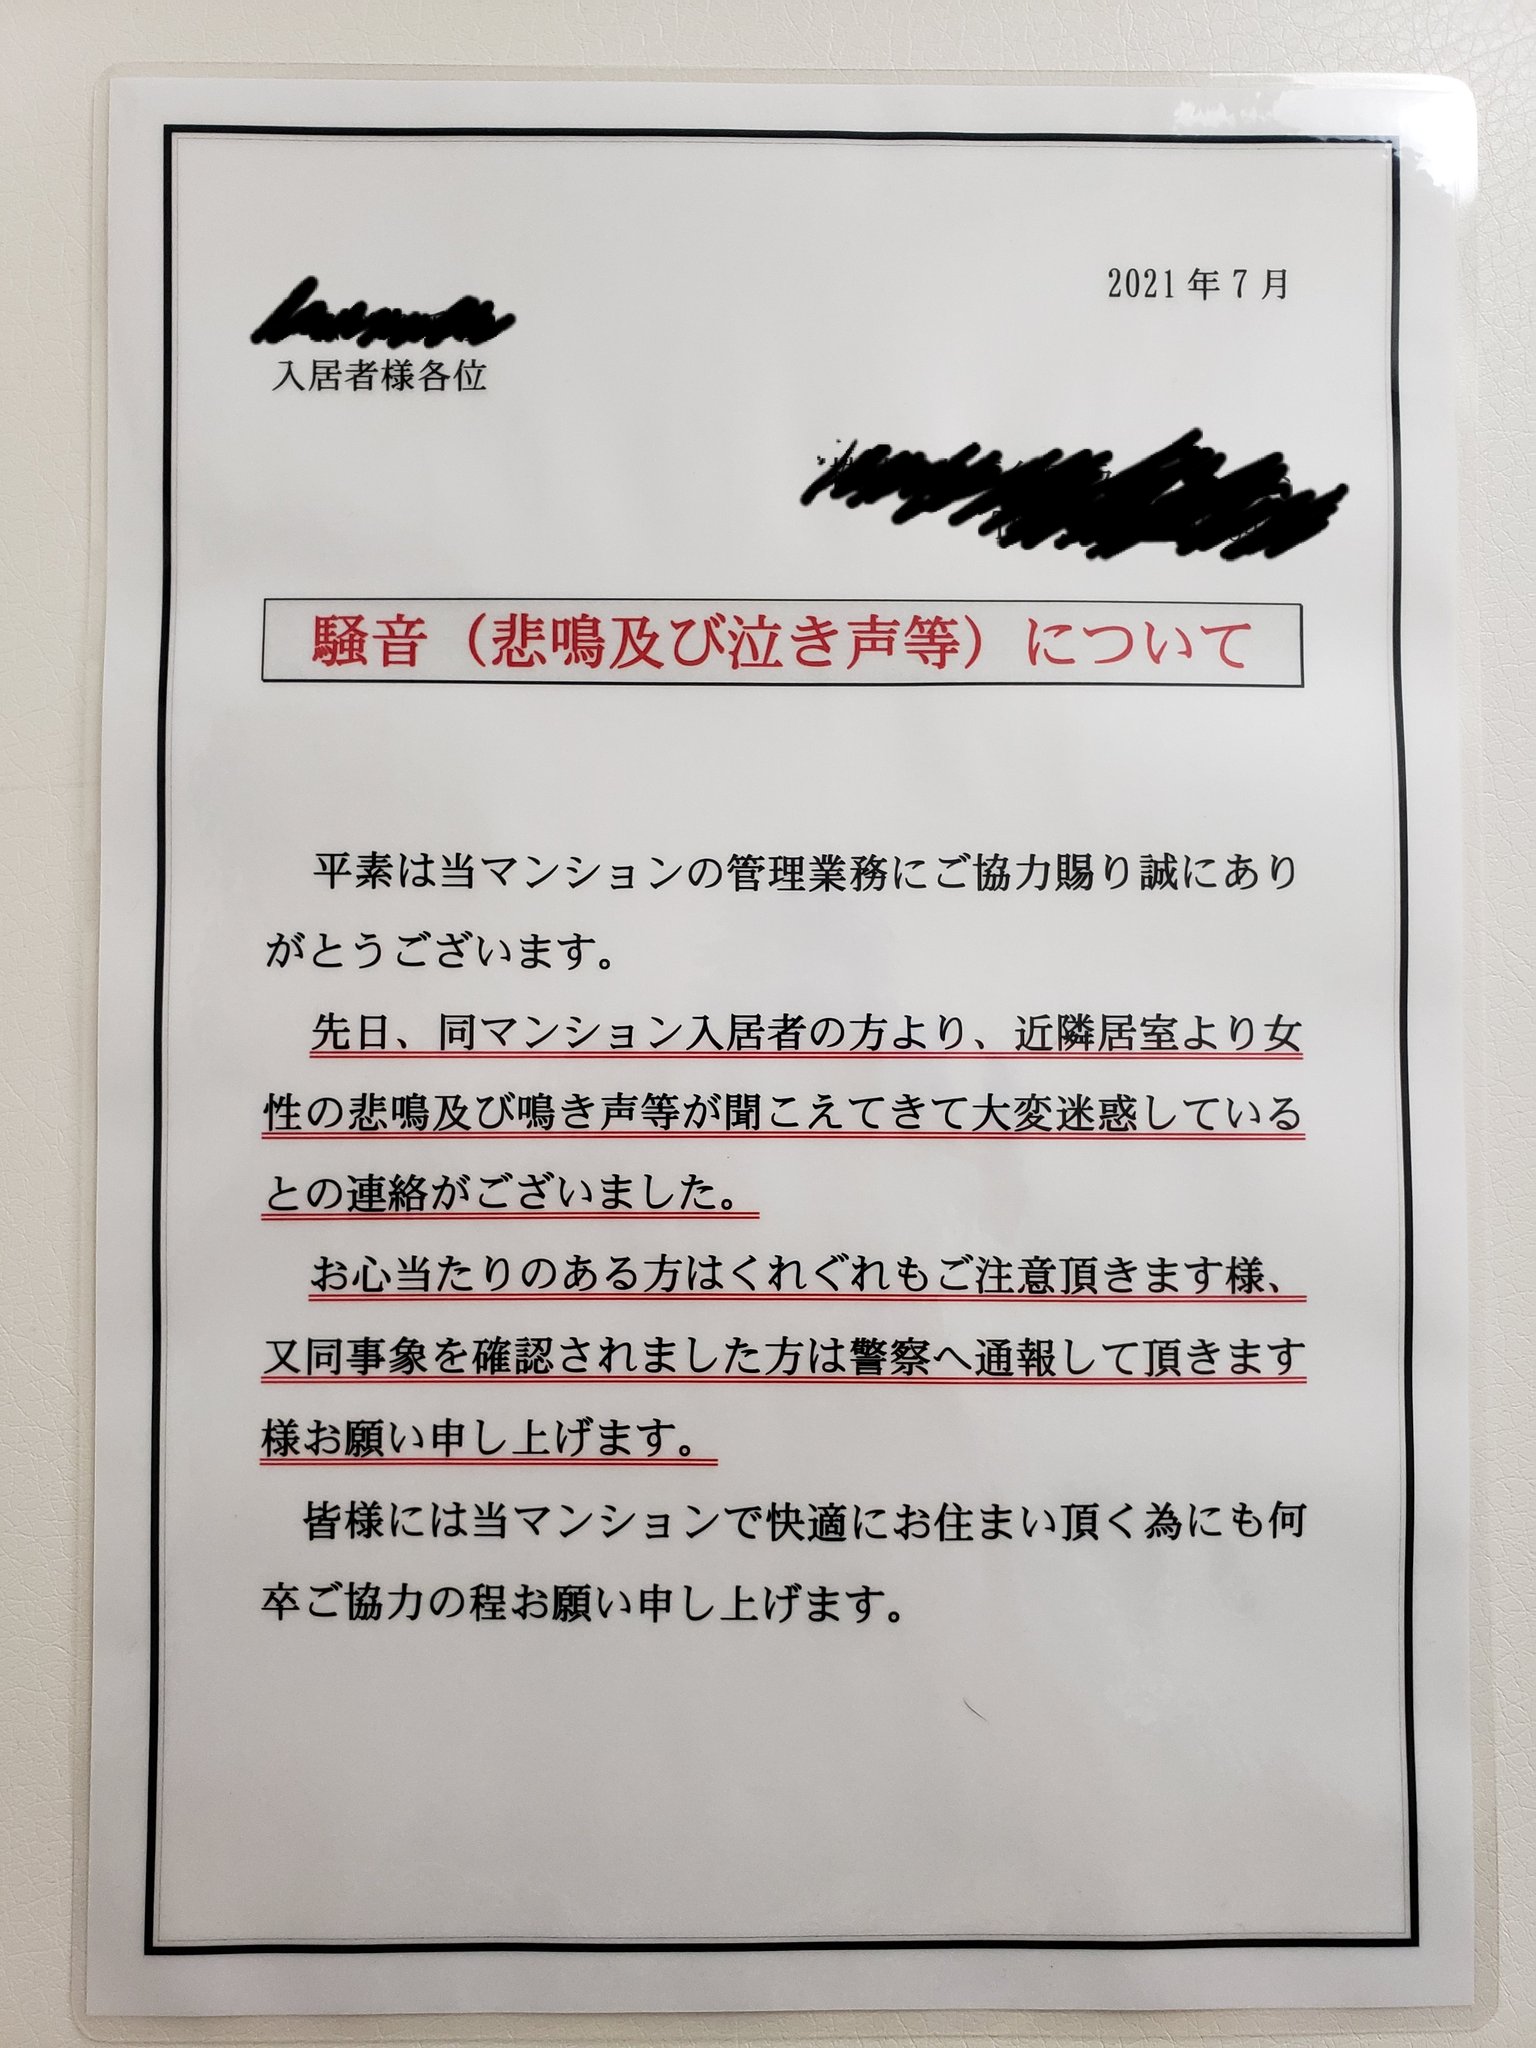 2021年7月
入居者様各位
騒音（悲鳴及び泣き声等）について
平素は当マンションの管理業務にご協力賜り誠にあり
がとうございます。
先日、同マンション入居者の方より、近隣居室より女
性の悲鳴及び鳴き声等が聞こえてきて大変迷惑している
との連絡がございました。
お心当たりのある方はくれぐれもご注意頂きます様、
又同事象を確認されました方は警察へ通報して頂きます
様お願い申し上げます。
皆様には当マンションで快適にお住まい頂く為にも何
卒ご協力の程お願い申し上げます。